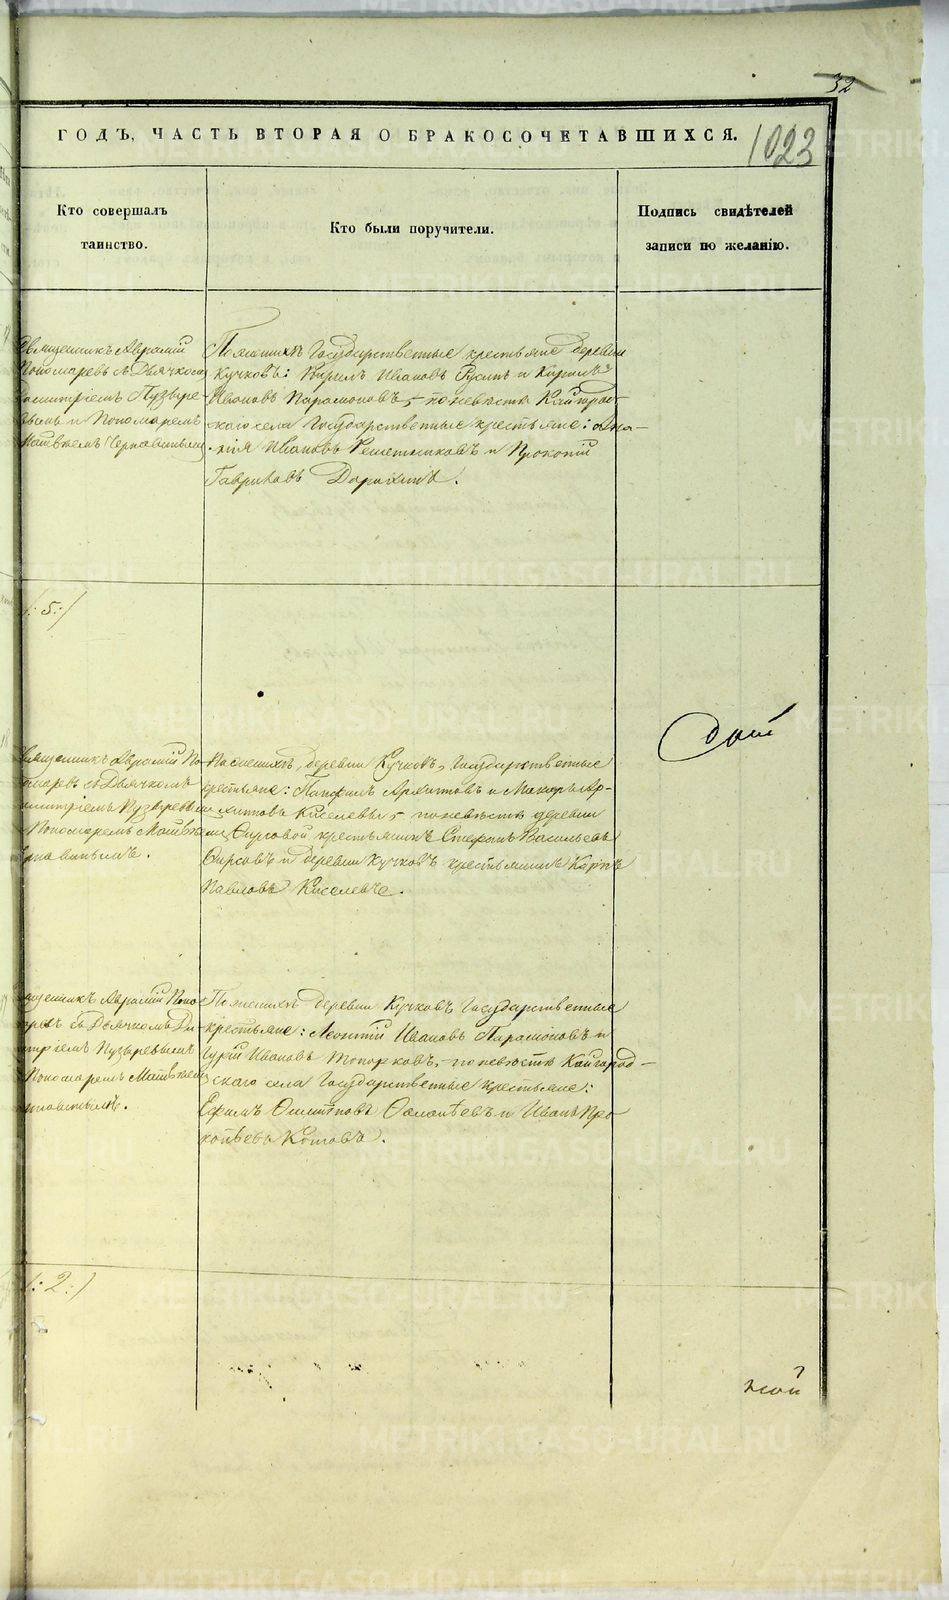 32
ГОДЪ, ЧАСТЬ ВТОРАЯ О БРАКОСОЧЕТАВШИХСЯ.
1023
Кто совершалъ
таинство.
Кто были поручители.
Подпись свидѣтелей
записи по желанію.
Священникъ Аврамій
Пономаревъ съ Дьячкомъ
Димитріемъ Пузыре-
вымъ и Пономаремъ
Матвѣемъ
По женихѣ Государственные крестьяне деревни
Кучковъ: Кирилъ Ивановъ и Кирилъ
Ивановъ Парамоновъ, - по невѣстѣ Кайгород-
скаго села Государственные крестьяне: Ана-
нія Ивановъ Решетниковъ и Прокопій
Гавриловъ
/: 5 :/
Священникъ Аврамій По-
номаревъ съ Дьячкомъ
Димитріемъ Пузыревымъ
и Пономаремъ Матвѣ-
По женихѣ, деревни Кучковъ, Государственные
крестьяне: Панфилъ Архиповъ и Макаръ Ар-
хиповъ Киселевы, - по невѣстѣ деревни
Фирсовой крестьянинъ Стефанъ Васильевъ
Фирсовъ и деревни Кучковъ крестьянинъ Карпъ
Павловъ Киселевъ.
Священникъ Аврамій Поно-
маревъ съ Дьячкомъ Ди-
митріемъ Пузыревымъ
и Пономаремъ Матвѣемъ
По женихѣ деревни Кучковъ Государственные
крестьяне: Леонтій Ивановъ Парамоновъ и
Гурій Ивановъ Топорковъ, - по невѣстѣ Кайгород-
скаго села Государственные крестьяне:
Ефимъ и Иванъ Про-
копьевъ Котовъ.
/: 2 :/
METRIKI.GASO-URAL.RU